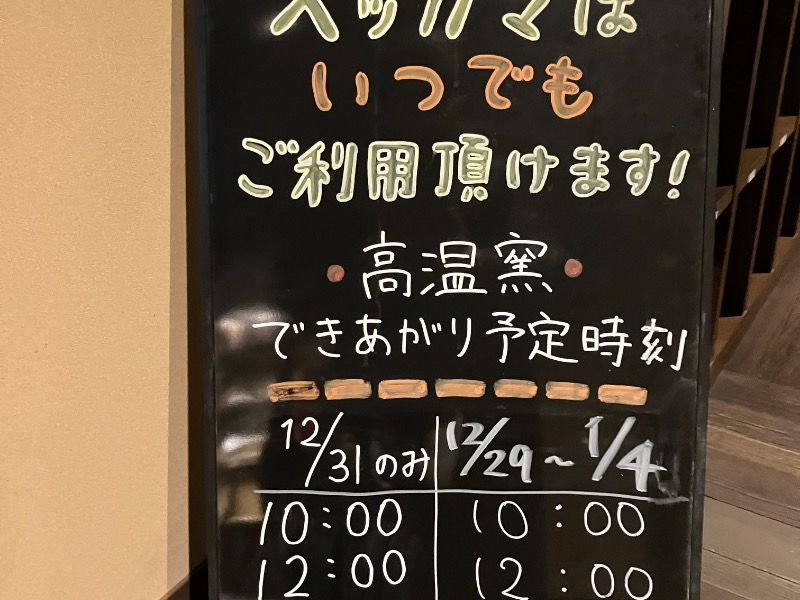 ベッカマは
いつでも
ご利用頂けます!
・高温窯・
できあがり予定時刻
12/31のみ 12/29~1/4
10:00 10:00
12:00 12:00